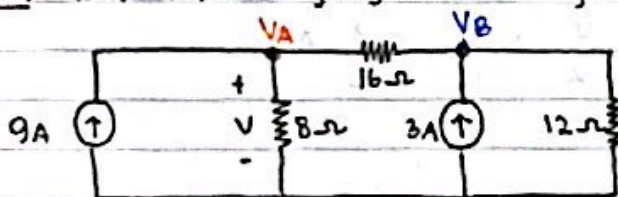 VA VB
16Ω
+
9A V 8Ω 3A 12Ω
-